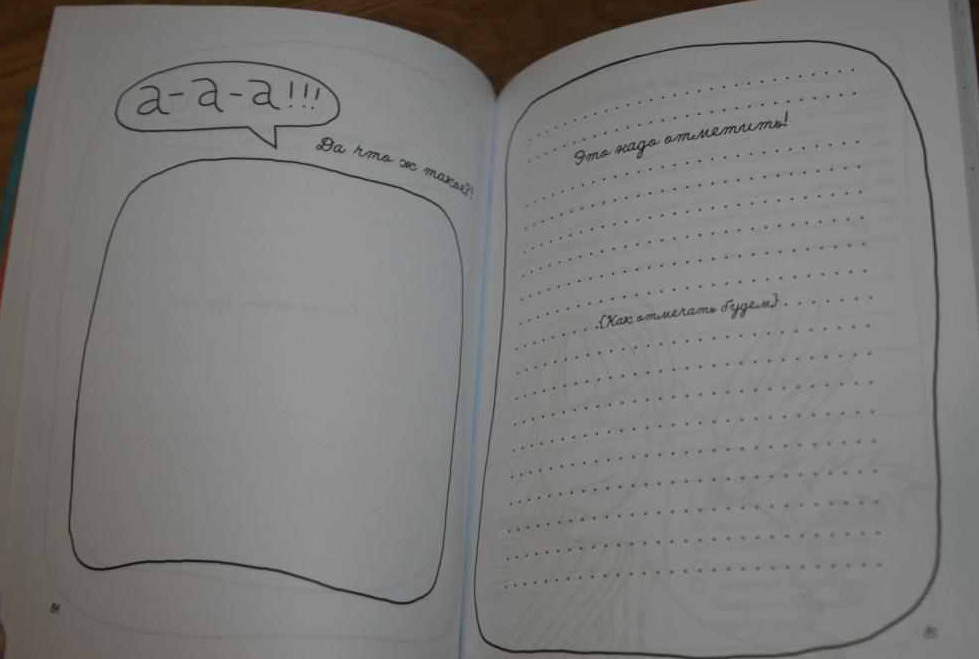 а-а-а!!!
Да что ж такое?!
84
Это надо отметить!
{Как отмечать будем}
85